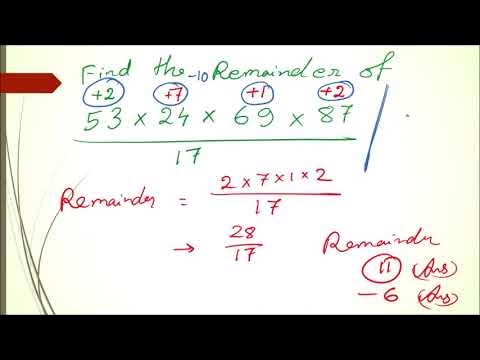 Find the -10 Remainder of
+2 +7 +1 +2
53 × 24 × 69 × 87
17
Remainder = 2 × 7 × 1 × 2
17
→ 28
17
Remainder
11 (Ans)
-6 (Ans)